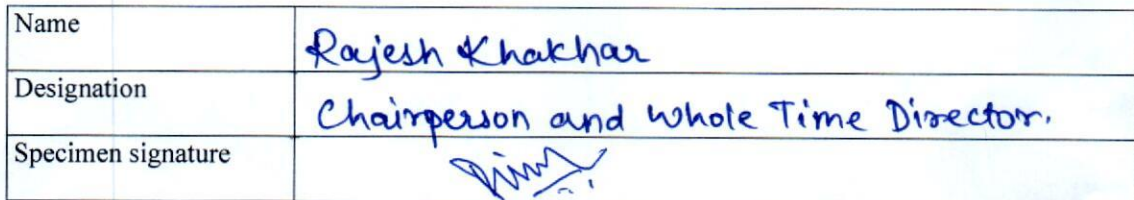 Name
Rajesh Khakhar
Designation
Chairperson and Whole Time Director.
Specimen signature